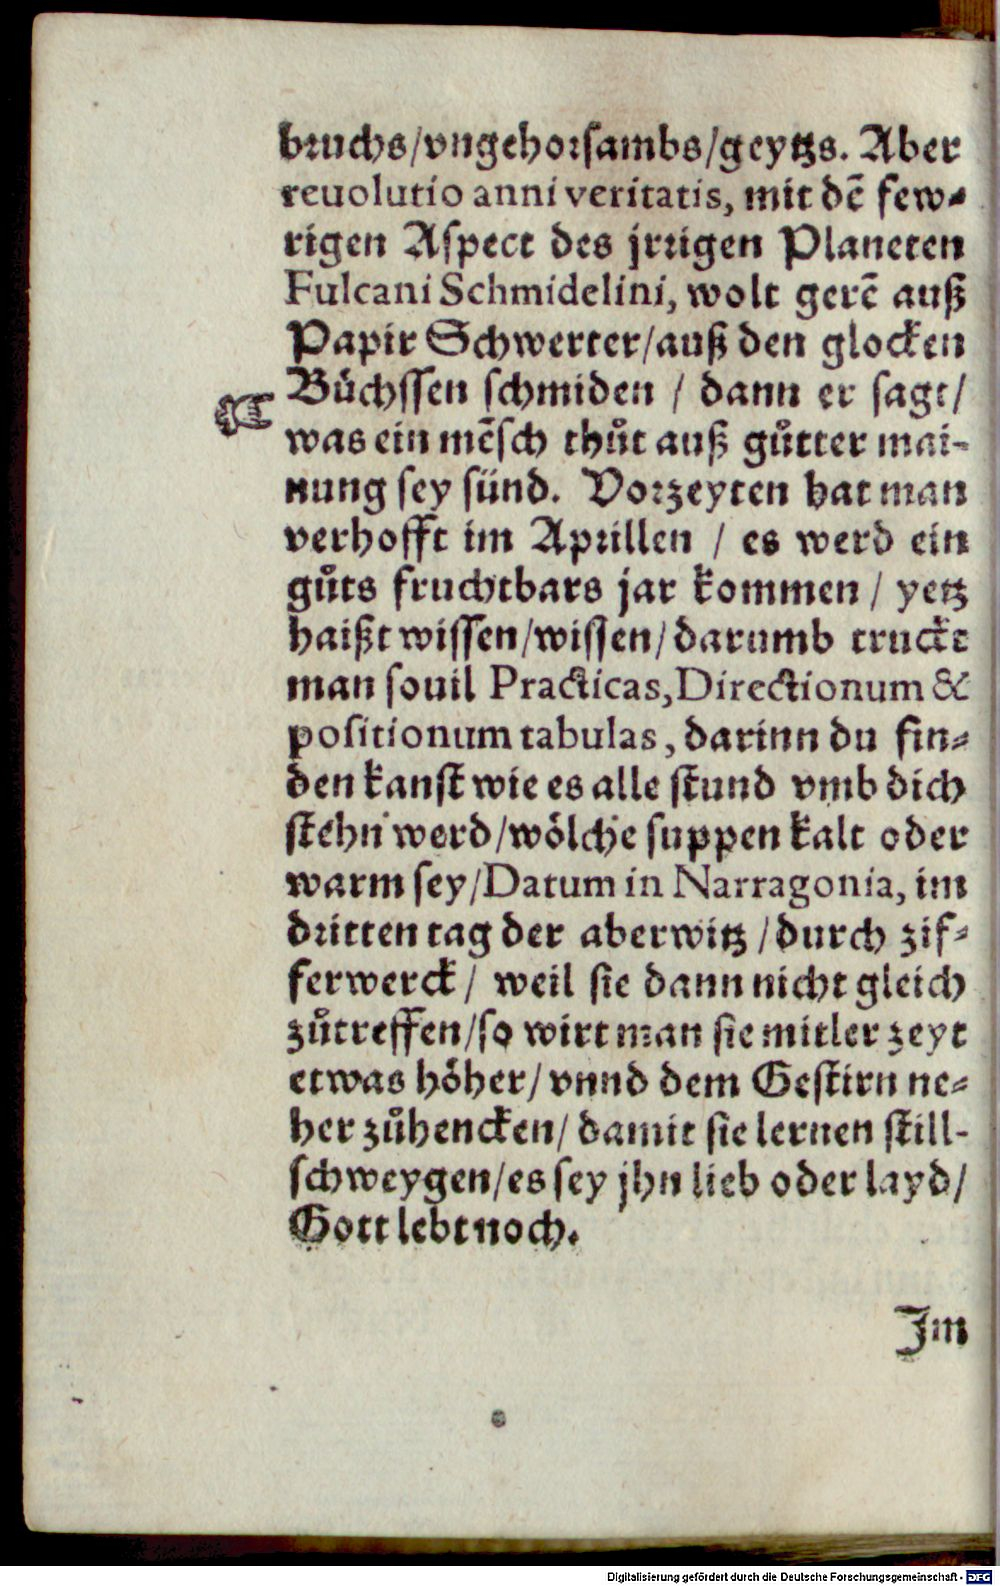 bruchs/vngehorsambs/geytzs. Aber
reuolutio anni veritatis, mit dẽ few-
rigen Aspect des jrrigen Planeten
Fulcani Schmidelini, wolt gerẽ auß
Papir Schwerter/auß den glocken
Bůchssen schmiden / dann er sagt/
was ein mẽsch thůt auß gůtter mai-
nung sey sünd. Vorzeyten hat man
verhofft im Aprillen / es werd ein
gůts fruchtbars jar kommen / yetz
haißt wissen/wissen/darumb truckt
man souil Practicas, Directionum &
positionum tabulas, darinn du fin-
den kanst wie es alle stund vmb dich
stehn werd/wölche suppen kalt oder
warm sey/Datum in Narragonia, im
dritten tag der aberwitz /durch zif-
ferwerck/ weil sie dann nicht gleich
zůtreffen/so wirt man sie mitler zeyt
etwas höher/ vnnd dem Gestirn ne-
her zůhencken/ damit sie lernen still-
schweygen/es sey jhn lieb oder layd/
Gott lebt noch.
Im
Digitalisierung gefördert durch die Deutsche Forschungsgemeinschaft - DFG